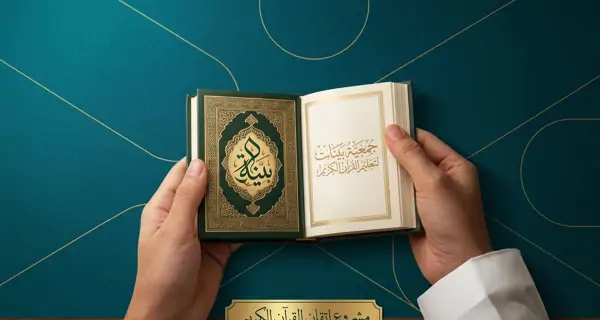 جمعية بينات
لتعليم القرآن الكريم
بينة
مشروع إتقان القرآن الكريم